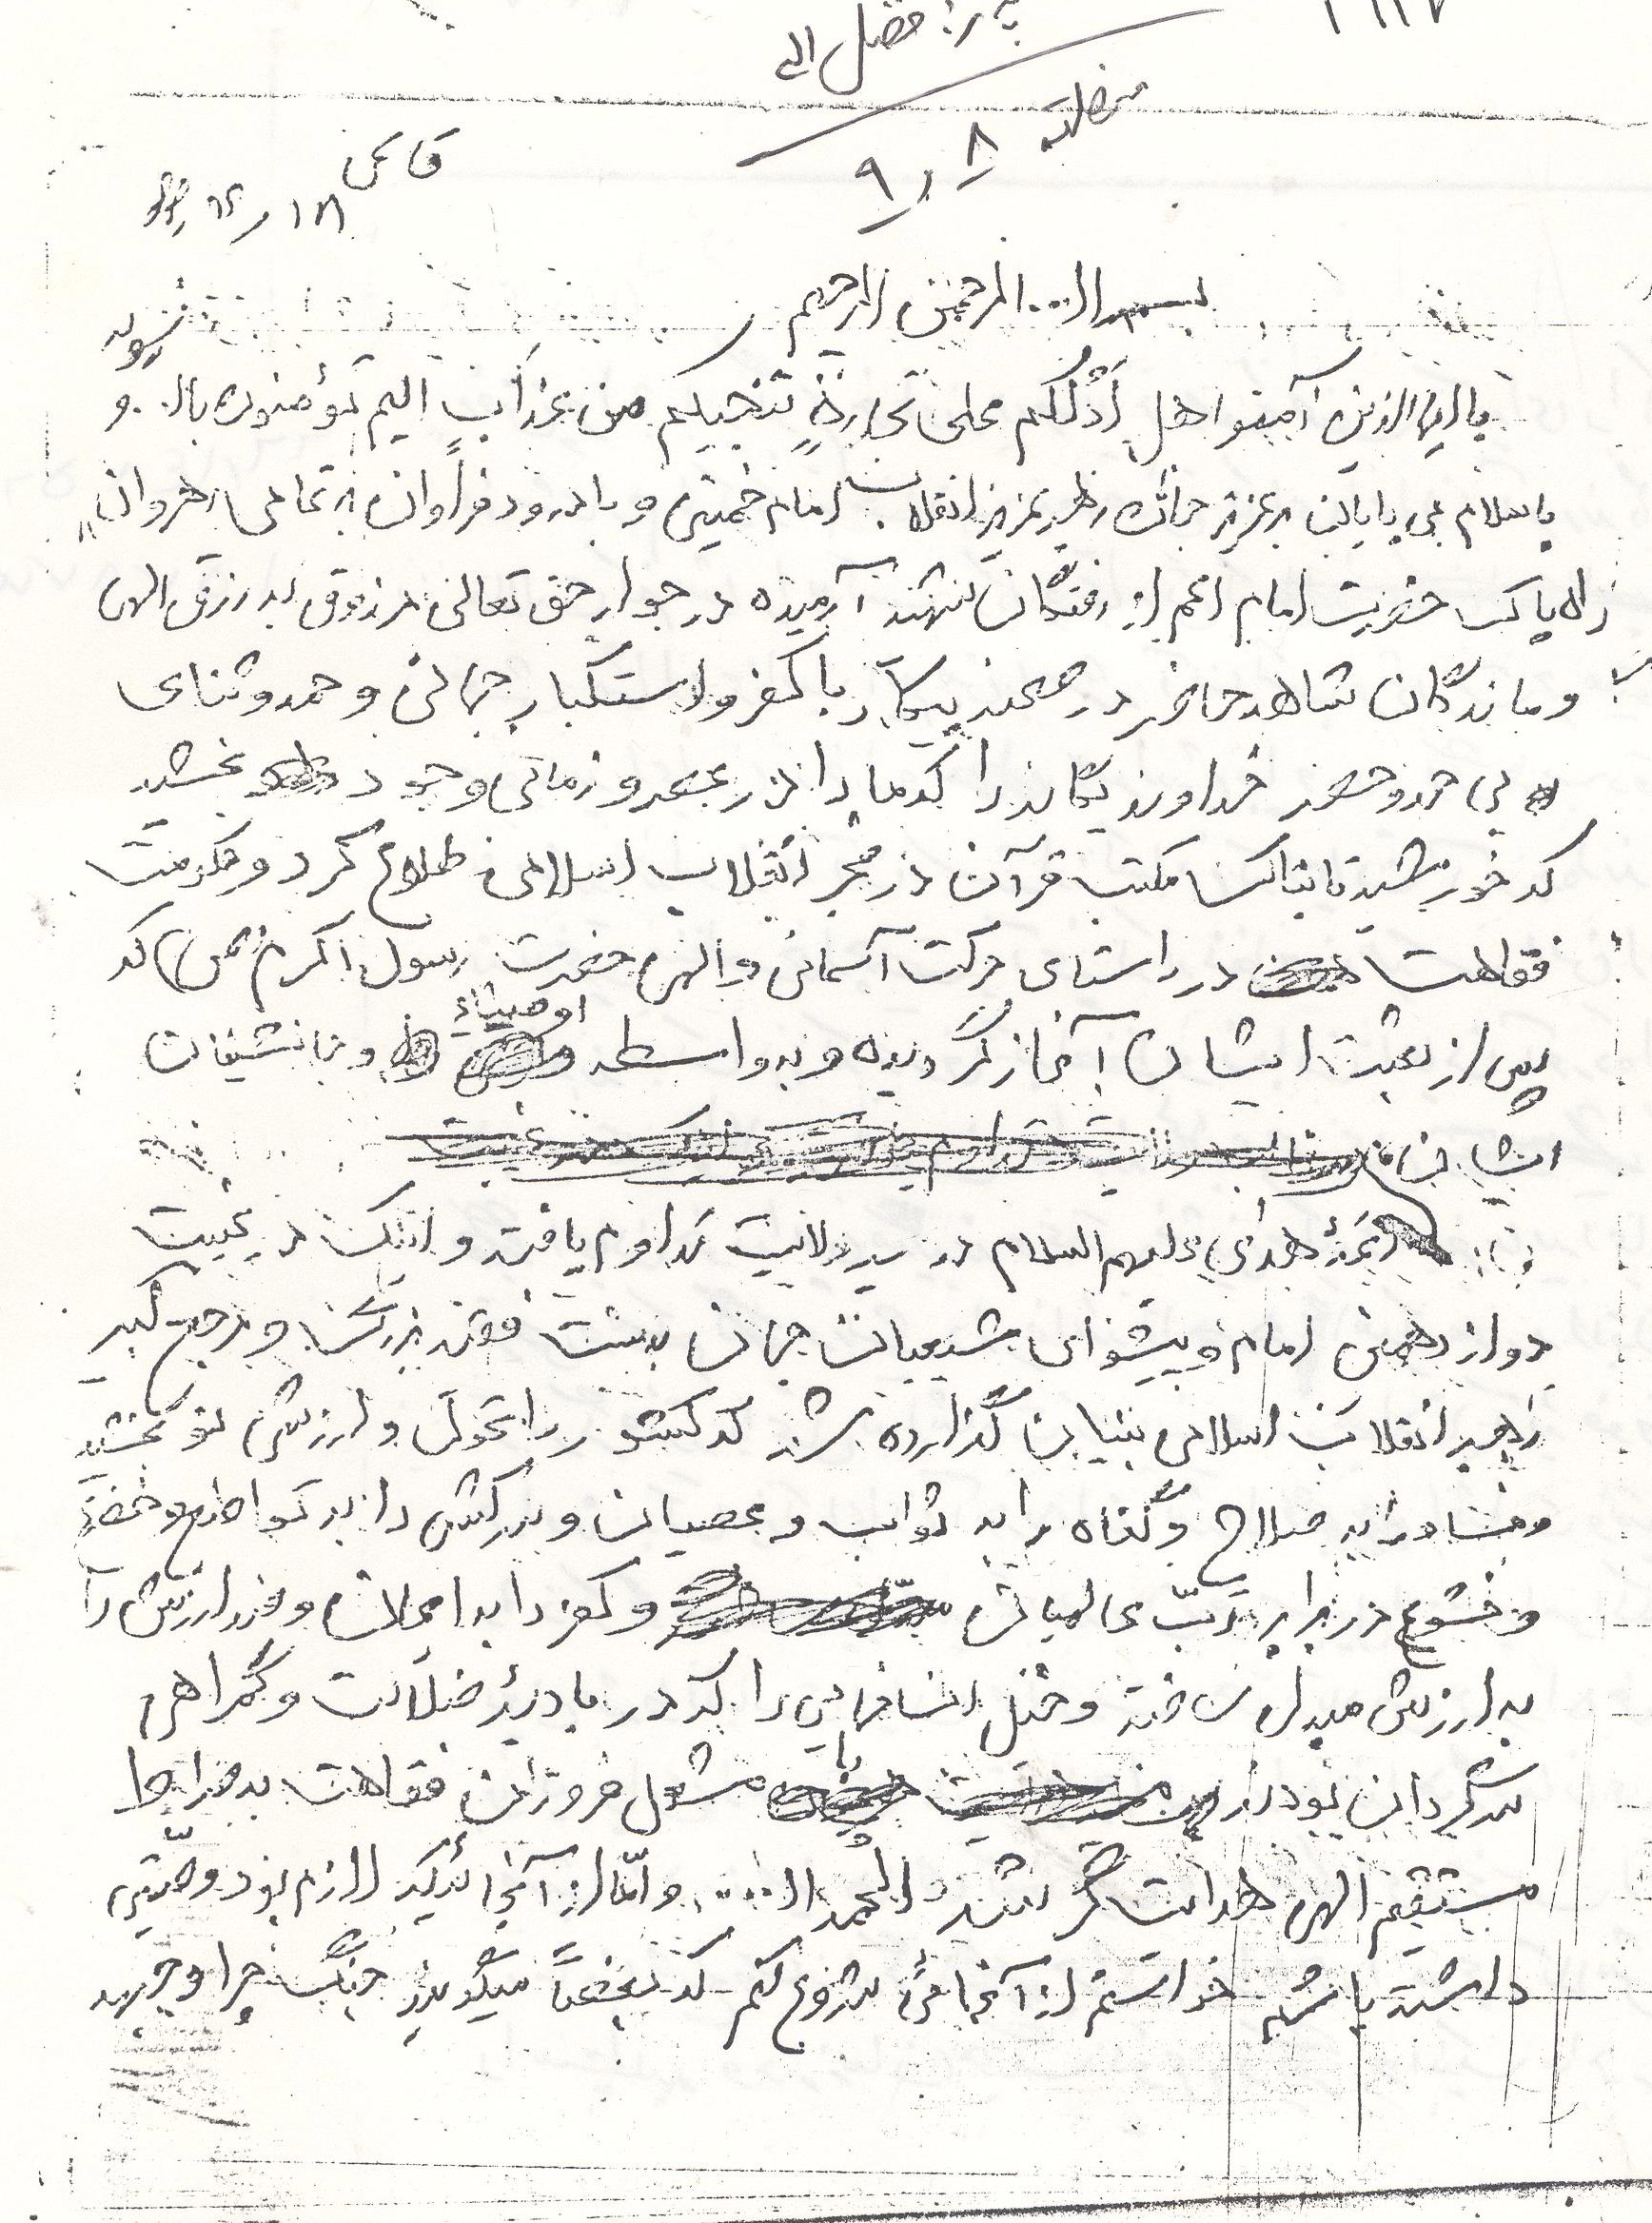 فضل الله
منطقه ۸
۹
بسم الله الرحمن الرحیم
یا ایها الذین آمنوا هل اَدُلُّکُم علی تجارةٍ تنجیکم من عذابٍ الیم تؤمنون بالله و
رسوله
با سلام بی پایان بر عزیز جانان رهبر عزیز انقلاب امام خمینی و با درود فراوان بر تمامی رهروان
راه پاک حضرت امام اعم از رفتگان شهید آرمیده در جوار حق تعالی مرزوق به رزق الهی
و ماندگان شاهد حاضر در صحنه پیکار با کفر و استکبار جهانی و حمد و ثنای
بی حد و حصر خداوند یگانه را که ما را در عصر و زمانی وجود بخشید
که خورشید تابناک مکتب قرآن در فجر انقلاب اسلامی طلوع کرد و حکومت
فقاهت در راستای حرکت آسمانی و الهی حضرت رسول اکرم (ص) که
پس از بعثت ایشان آغاز گردیده و به واسطه اوصیاء و جانشینان
ایشان
ائمۀ هدی علیهم السلام در سیر ولایت تداوم یافته و اینک در غیبت
دوازدهمین امام و پیشوای شیعیان جهان بدست فقیه بزرگ و مرجع کبیر
رهبر انقلاب اسلامی بنیان گذارده شد که کشور را تحول و ارزش نو بخشید
و فساد را به صلاح و گناه را به ثواب و عصیان و سرکشی را به تواضع و خضوع
و خشوع در برابر ربّ عالمیان و کفر را به ایمان و ضد ارزش را
به ارزش مبدل ساخته و خیل انسانهایی را که در بادیۀ ضلالت و گمراهی
سرگردان بودند با مشعل فروزان فقاهت به صراط
مستقیم الهی هدایت گر شد الحمد الله و امّا از آنجائیکه لازم بود وصیّتی
داشته باشم خواستم از آنجائی شروع کنم که بعضاً میگویند جنگ چرا و جبهه